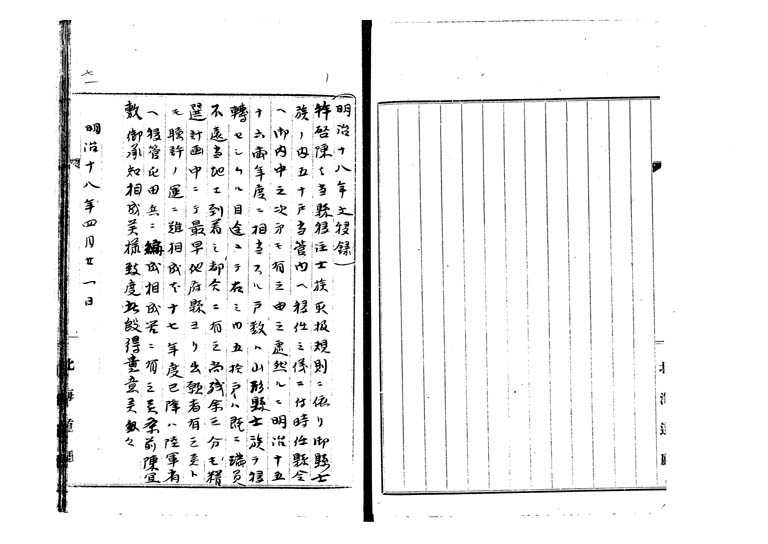 明治十八年文移録)
拝啓陳ハ当縣移住士族取扱規則ニ依リ御縣士
族ノ内五十戸当管内ヘ移住之儀ニ付時任縣令
ヘ御内申之次第モ有之由之處然ルニ明治十五
十六両年度ニ相当スル戸数ハ山形縣士族ヲ移
轉セシムル目途ニテ右之内五拾戸ハ既ニ満員
不遠当地エ到着之都合ニ有之尚残余之分モ精
選計画中ニテ最早他府縣ヨリ出願者有之候ト
モ聴許ノ運ニ難相成尤十七年度已降ハ陸軍省
ヘ移管屯田兵ニ編成相成筈ニ有之候条前陳宜
敷御承知相成候様致度此段得貴意候敬々
明治十八年四月廿一日
北海道廳
北海道廳